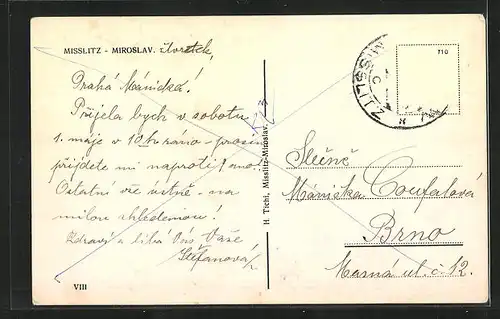 MISSLITZ - MIROSLAV. čtvrtek,
Drahá Mánička!
Přijela bych v sobotu
1. máje v 10 h ráno - prosím
přijdete mi naproti!
Ostatní vše ústně - na
milou shledanou!
Zdraví a líbá Vás Vaše
Štefanová
VIII
H. Tichi, Misslitz-Miroslav.
MISSLITZ
110
Slečně
Mánička Coufalová
Brno
Marná ul. č 12.